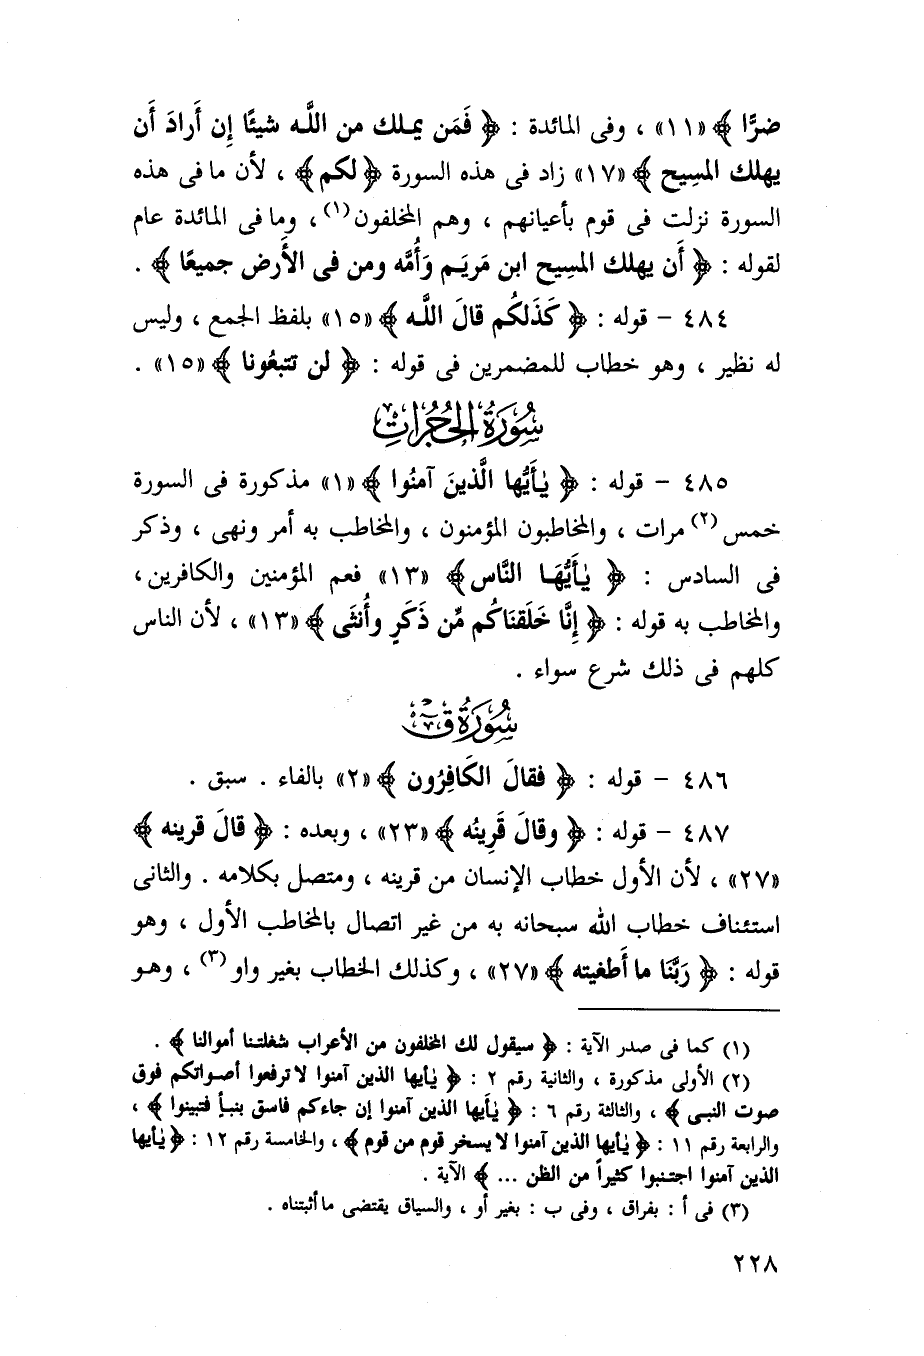 ضرًّا ﴾ «١١» ، وفى المائدة : ﴿ فَمَن يملك من اللَّه شيئًا إن أَرادَ أَن
يهلك المسِيح ﴾ «١٧» زاد فى هذه السورة ﴿ لكم ﴾ ، لأن ما فى هذه
السورة نزلت فى قوم بأعيانهم ، وهم المخلفون(١) ، وما فى المائدة عام
لقوله : ﴿ أَن يهلك المسِيح ابن مَريَم وَأُمَّه ومن فى الأَرض جميعًا ﴾ .
٤٨٤ – قوله : ﴿ كَذَلكُم قالَ اللَّه ﴾ «١٥» بلفظ الجمع ، وليس
له نظير ، وهو خطاب للمضمرين فى قوله : ﴿ لن تتبعُونا ﴾ «١٥» .
سُورَةُ الحُجُرَاتِ
٤٨٥ – قوله : ﴿ يٰأَيُّها الَّذينَ آمنُوا ﴾ «١» مذكورة فى السورة
خمس(٢) مرات ، والمخاطبون المؤمنون ، والمخاطب به أمر ونهى ، وذكر
فى السادس : ﴿ يٰأَيُّهَا النَّاس ﴾ «١٣» فعم المؤمنين والكافرين ،
والمخاطب به قوله : ﴿ إِنَّا خَلَقنَاكُم مِّن ذَكَرٍ وأُنثَى ﴾ «١٣» ، لأن الناس
كلهم فى ذلك شرع سواء .
سُورَةُ قٓ
٤٨٦ – قوله : ﴿ فقالَ الكَافِرُون ﴾ «٢» بالفاء . سبق .
٤٨٧ – قوله : ﴿ وقالَ قَرِينُه ﴾ «٢٣» ، وبعده : ﴿ قالَ قرينه ﴾
«٢٧» ، لأن الأول خطاب الإنسان من قرينه ، ومتصل بكلامه . والثانى
استئناف خطاب الله سبحانه به من غير اتصال بالمخاطب الأول ، وهو
قوله : ﴿ رَبَّنَا ما أَطغيته ﴾ «٢٧» ، وكذلك الخطاب بغير واو(٣) ، وهو
(١) كما فى صدر الآية : ﴿ سيقول لك المخلفون من الأعراب شغلتنا أموالنا ﴾ .
(٢) الأولى مذكورة ، والثانية رقم ٢ : ﴿ يٰأيها الذين آمنوا لا ترفعوا أصواتكم فوق
صوت النبى ﴾ ، والثالثة رقم ٦ : ﴿ يٰأيها الذين آمنوا إن جاءكم فاسق بنبأ فتبينوا ﴾ ،
والرابعة رقم ١١ : ﴿ يٰأيها الذين آمنوا لا يسخر قوم من قوم ﴾ ، والخامسة رقم ١٢ : ﴿ يٰأيها
الذين آمنوا اجتنبوا كثيراً من الظن ... ﴾ الآية .
(٣) فى أ : بفراق ، وفى ب : بغير أو ، والسياق يقتضى ما أثبتناه .
٢٢٨